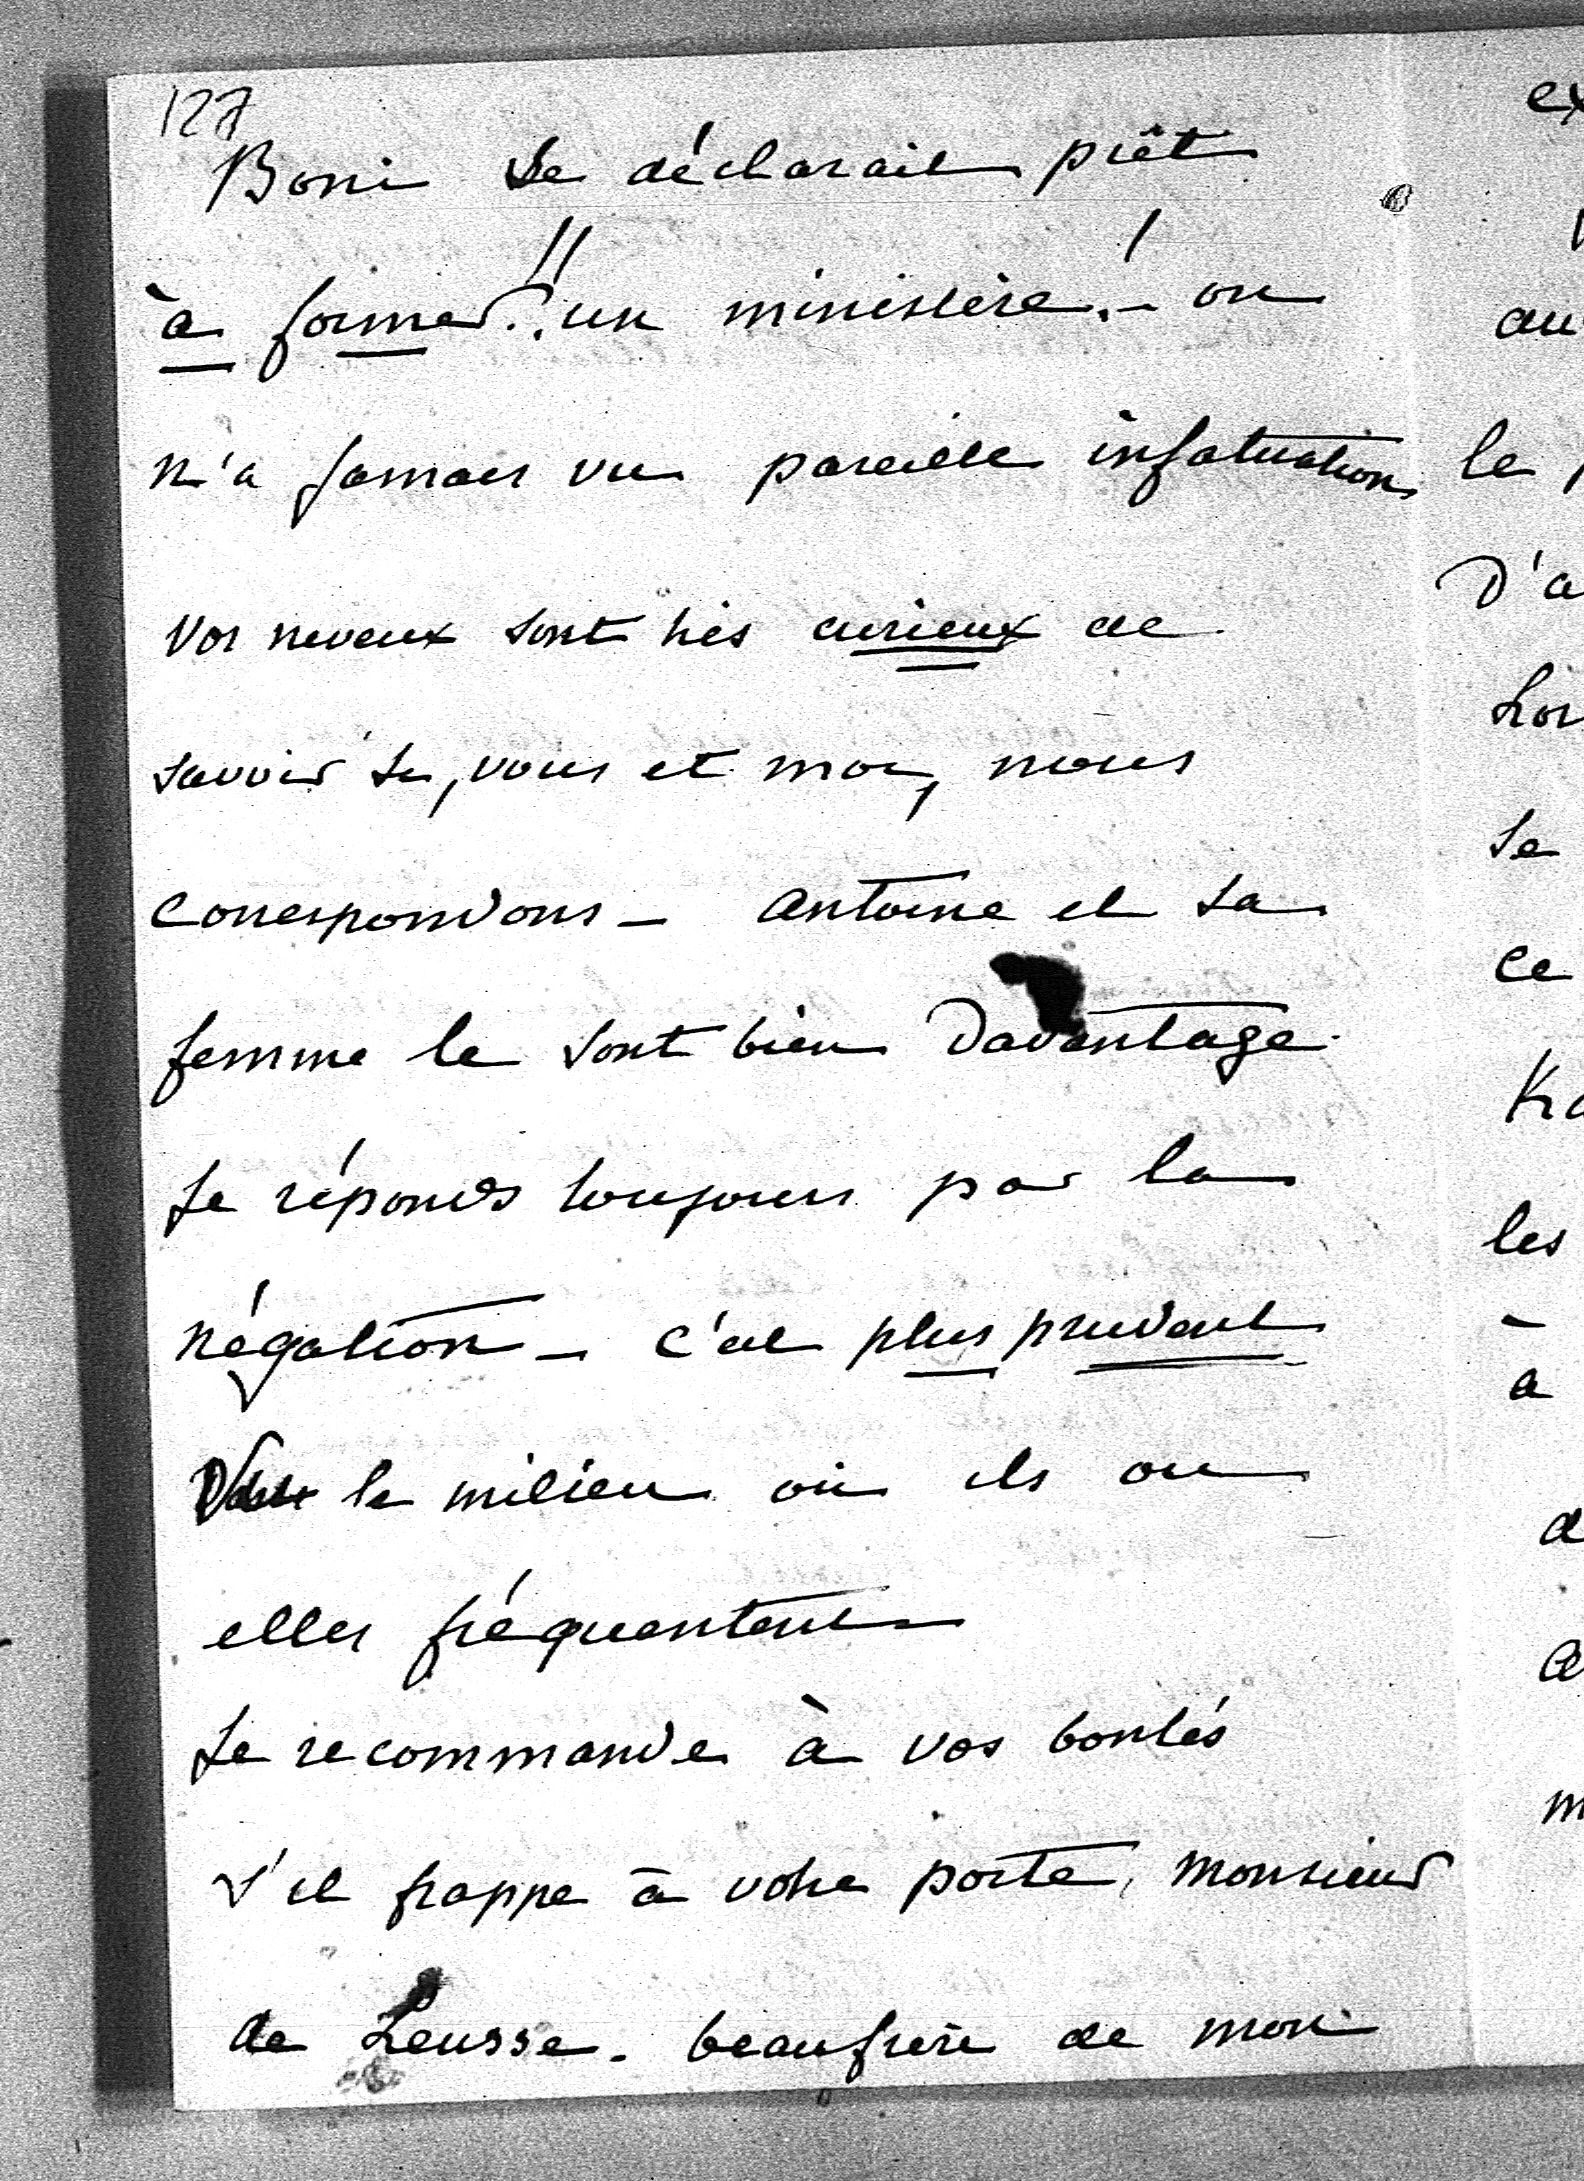 127
Boni se déclarait prêt
à former!! un ministère! - on
n'a jamais vu pareille infatuation
Vos neveux sont très curieux de
savoir si, vous et moi, nous
correspondons - Antoine et sa
femme le sont bien Davantage.
Je réponds toujours par la
négation - c'est plus prudent
le milieu où ils ou
elles fréquentent
Je recommande à vos bontés
s'il frappe à votre porte, Monsieur
de Leusse. beaufrère de mon
ex
au
le
D'a
Lor
se
ce
Kra
les
à
d
a
m